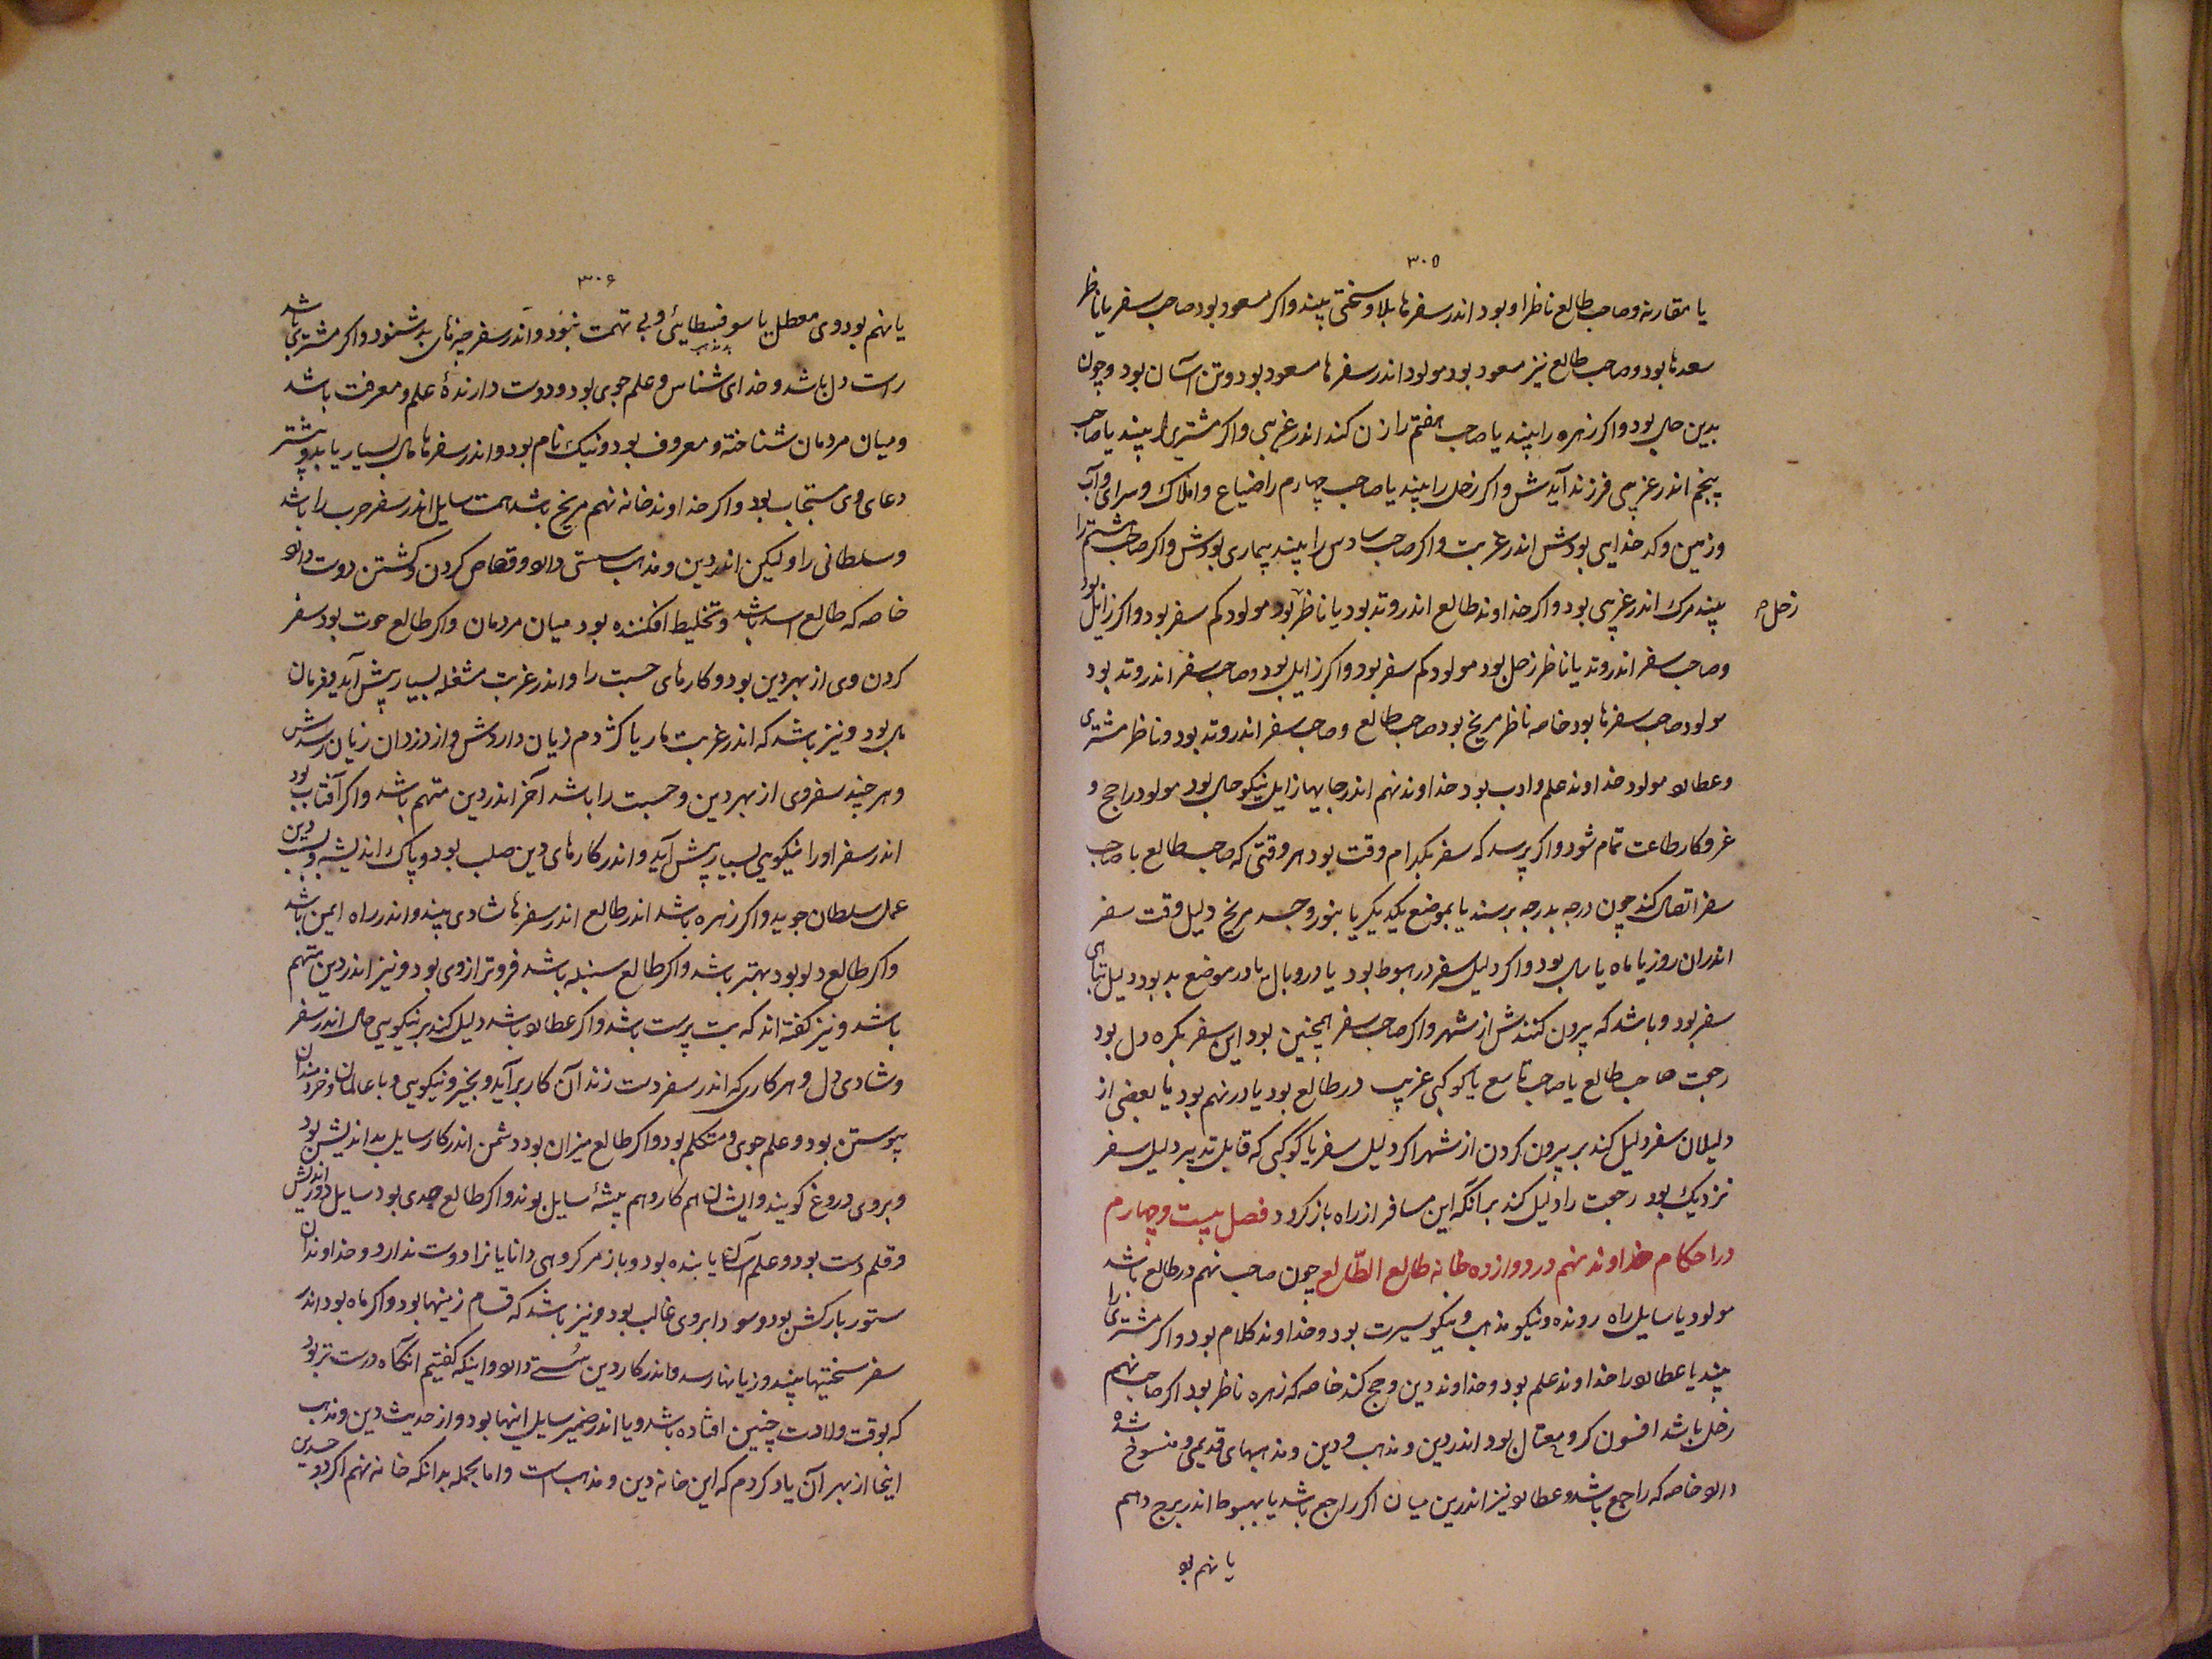 ۳۰۵
یا مقارنه و صاحب طالع ناظر او بود اندر سفرها بلا و سختی بیند و اکر مسعود بود صاحب سفر یا ناظر
سعدها بود و صاحب طالع نیز مسعود بود مولود اندر سفرها مسعود بود و تن آسان بود و چون
بدین حال بود و اکر زهره را بیند یا صاحب هفتم را زن کند اندر غریبی و اکر مشتریرا بیند یا صاحب
پنجم اندر غریبی فرزند آیدش و اکر زحل را بیند یا صاحب چهارم را ضیاع و املاک و سرای و آب
و زمین و کدخدایی بودش اندر غربت و اکر صاحب سادس را بیند بیماری بودش و اکر صاحب هشتم را
بیند مرک اندر غریبی بود و اکر خداوند طالع اندر وتد بود یا ناظر بود مولود کم سفر بود و اکر زایل بود
زحل
و صاحب سفر اندر وتد یا ناظر زحل بود مولود کم سفر بود و اکر زایل بود و صاحب سفر اندر وتد بود
مولود صاحب سفرها بود خاصه ناظر مریخ بود صاحب طالع و صاحب سفر اندر وتد بود و ناظر مشتری
و عطارد مولود خداوند علم و ادب بود خداوند نهم اندر جایهای زایل نیکو حال بود مولود را حج و
غزو کار طاعت تمام شود و اکر پرسد که سفر بکدام وقت بود هر وقتی که صاحب طالع با صاحب
سفر اتصال کند چون درجه بدرجه برسند یا بموضع یکدیکر یا بنور و جسد مریخ دلیل وقت سفر
اندران روز یا ماه یا سال بود و اکر دلیل سفر در هبوط بود یا در وبال یا در موضع بد بود دلیل تباهی
سفر بود و باشد که بیرون کنندش از شهر و اکر صاحب سفر همچنین بود این سفر بکره دل بود
رجعت صاحب طالع یا صاحب تاسع یا کوکبی غریب در طالع بود یا در نهم بود یا بعضی از
دلیلان سفر دلیل کند بر بیرون کردن از شهر اکر دلیل سفر یا کوکبی که قابل تدبیر دلیل سفر
نزدیک بود رجعت را دلیل کند برآنکه این مسافر از راه باز کردد فصل بیست و چهارم
در احکام خداوند نهم در دوازده خانه طالع الطّالع چون صاحب نهم در طالع باشد
مولود یا سایل راه رونده و نیکو مذهب و نیکو سیرت بود و خداوند کلام بود و اکر مشتری را
بیند یا عطارد را خداوند علم بود و خداوند دین و حج کند خاصه که زهره ناظر بود اکر صاحب نهم
زحل باشد افسون کر و محتال بود اندر دین و مذهب و دین و مذهبهای قدیمی و منسوخ شده
دارد خاصه که راجع باشد و عطارد نیز اندرین میان اکر راجع باشد یا بهبوط اندر برج دهم
یا نهم بود
۳۰۶
یا نهم بود وی معطل یا سوفسطایئ و بی تهمت نبود و اندر سفر چیزهای بد شنود و اکر مشتری باشد
راست دل باشد و خدای شناس و علم جوی بود و دوست دارندهٔ علم و معرفت باشد
و میان مردمان شناخته و معروف بود و نیک نام بود و اندر سفرها مال بسیار یابد و بیشتر
دعای وی مستجاب بود و اکر خداوند خانه نهم مریخ باشد همت سایل اندر سفر حرب را باشد
و سلطانی را و لیکن اندر دین و مذهب سستی دارد و قصاص کردن و کشتن دوست دارد
خاصه که طالع اسد باشد و تخلیط افکننده بود میان مردمان و اکر طالع حوت بود سفر
کردن وی از بهر دین بود و کارهای حسبت را و اندر غربت مشغله بسیار پیش آید بفرمان
بود و نیز باشد که اندر غربت مار یا کژدم زیان داردش و از دزدان زیان رسدش
و هر چند سفر وی از بهر دین و حسبت را باشد آخر اندر دین متهم باشد و اکر آفتاب بود
اندر سفر او را نیکویی بسیار پیش آید و اندر کارهای دین صلب بود و پاک اندیشه و بسبب دین
عمل سلطان جوید و اکر زهره باشد اندر طالع اندر سفرها شادی بیند و اندر راه ایمن باشد
و اکر طالع دلو بود بهتر باشد و اکر طالع سنبله باشد فروتر ازوی بود و نیز اندر دین متهم
باشد و نیز کفته اند که بت پرست باشد و اکر عطارد باشد دلیل کند بر نیکویی حال اندر سفر
و شادی دل و هر کاری که اندر سفر دست زند آن کار برآید و بخیر و نیکویی و با عالمان و خردمندان
پیوستن بود و علم جوی و متکلم بود و اکر طالع میزان بود دشمن اندر کار سایل بد اندیش بود
و بروی دروغ کویند و ایشان هم کار و هم پیشهٔ سایل بوند و اکر طالع جدی بود سایل دور اندیش
و قلم دست بود و علم آسان یابنده بود و باز مر کروهی دانایانرا دوست ندارد و خداوندان
ستور بارکش بود و سودا بروی غالب بود و نیز باشد که قسام زمینها بود و اکر ماه بود اندر
سفر سختیها بیند و زیانها رسد و اندر کار دین سُستی دارد و اینکه کفتیم انکاه درست تر بود
که بوقت ولادت چنین افتاده باشد و یا اندر ضمیر سایل اینها بود و از حدیث دین و مذهب
اینجا از بهر آن یاد کردم که این خانه دین و مذهب است و اما بجمله بدانکه خانه نهم اکر بود